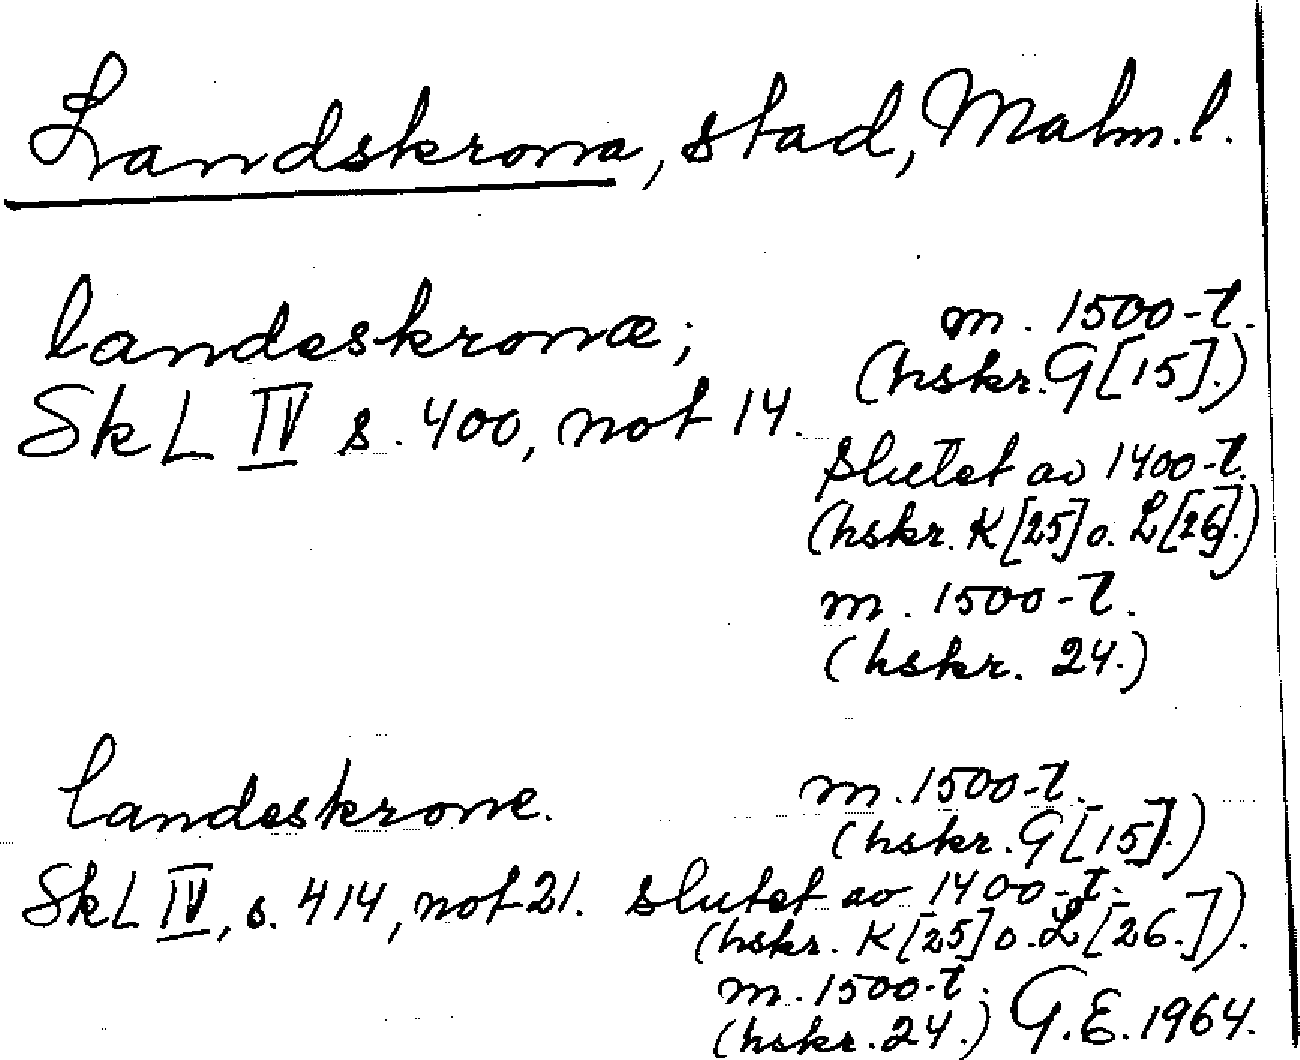 Landskrona, stad, Malm. l.
landeskronæ;
m. 1500-t.
(hskr. G [15].)
SkL IV s. 400, not 14.
slutet av 1400-t.
(hskr. K [25] o. L [26].)
m. 1500-t.
(hskr. 24.)
landeskrone.
m. 1500-t.
(hskr. G [15].)
SkL IV, s. 414, not 21. slutet av 1400-t.
(hskr. K [25] o. L [26.]).
m. 1500-t.
(hskr. 24.) G.E. 1964.